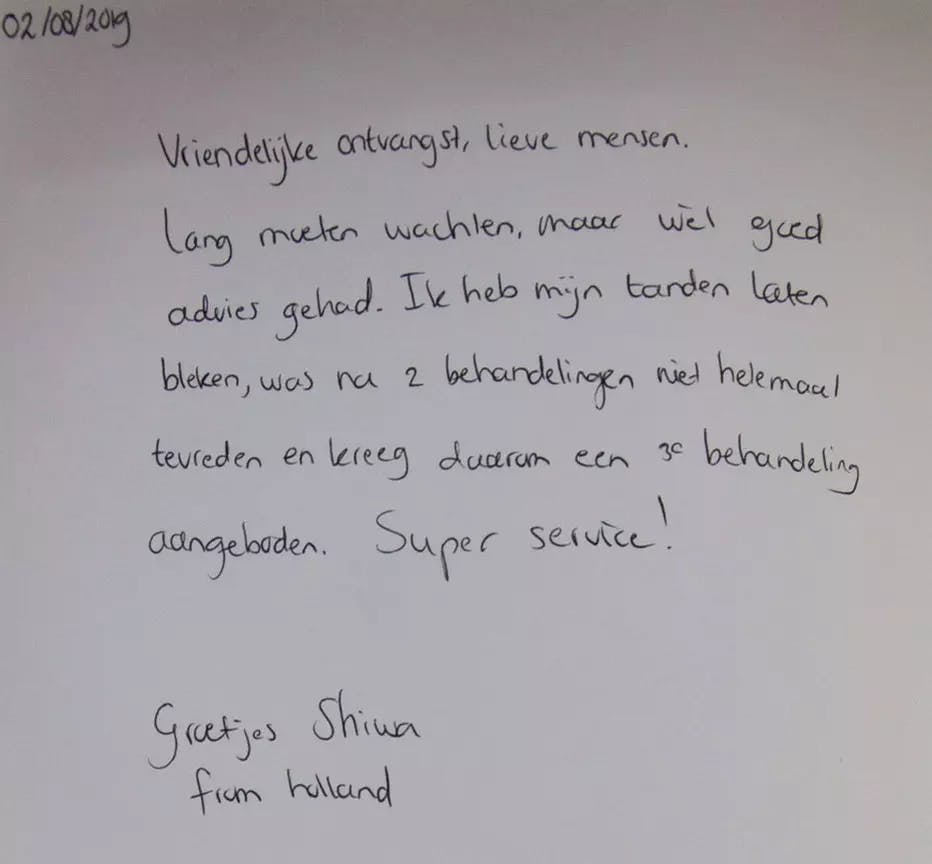 02/08/2019
Vriendelijke ontvangst, lieve mensen.
Lang moeten wachten, maar wel goed
advies gehad. Ik heb mijn tanden laten
bleken, was na 2 behandelingen niet helemaal
tevreden en kreeg daarom een 3e behandeling
aangeboden. Super service!
Groetjes Shiwa
from holland